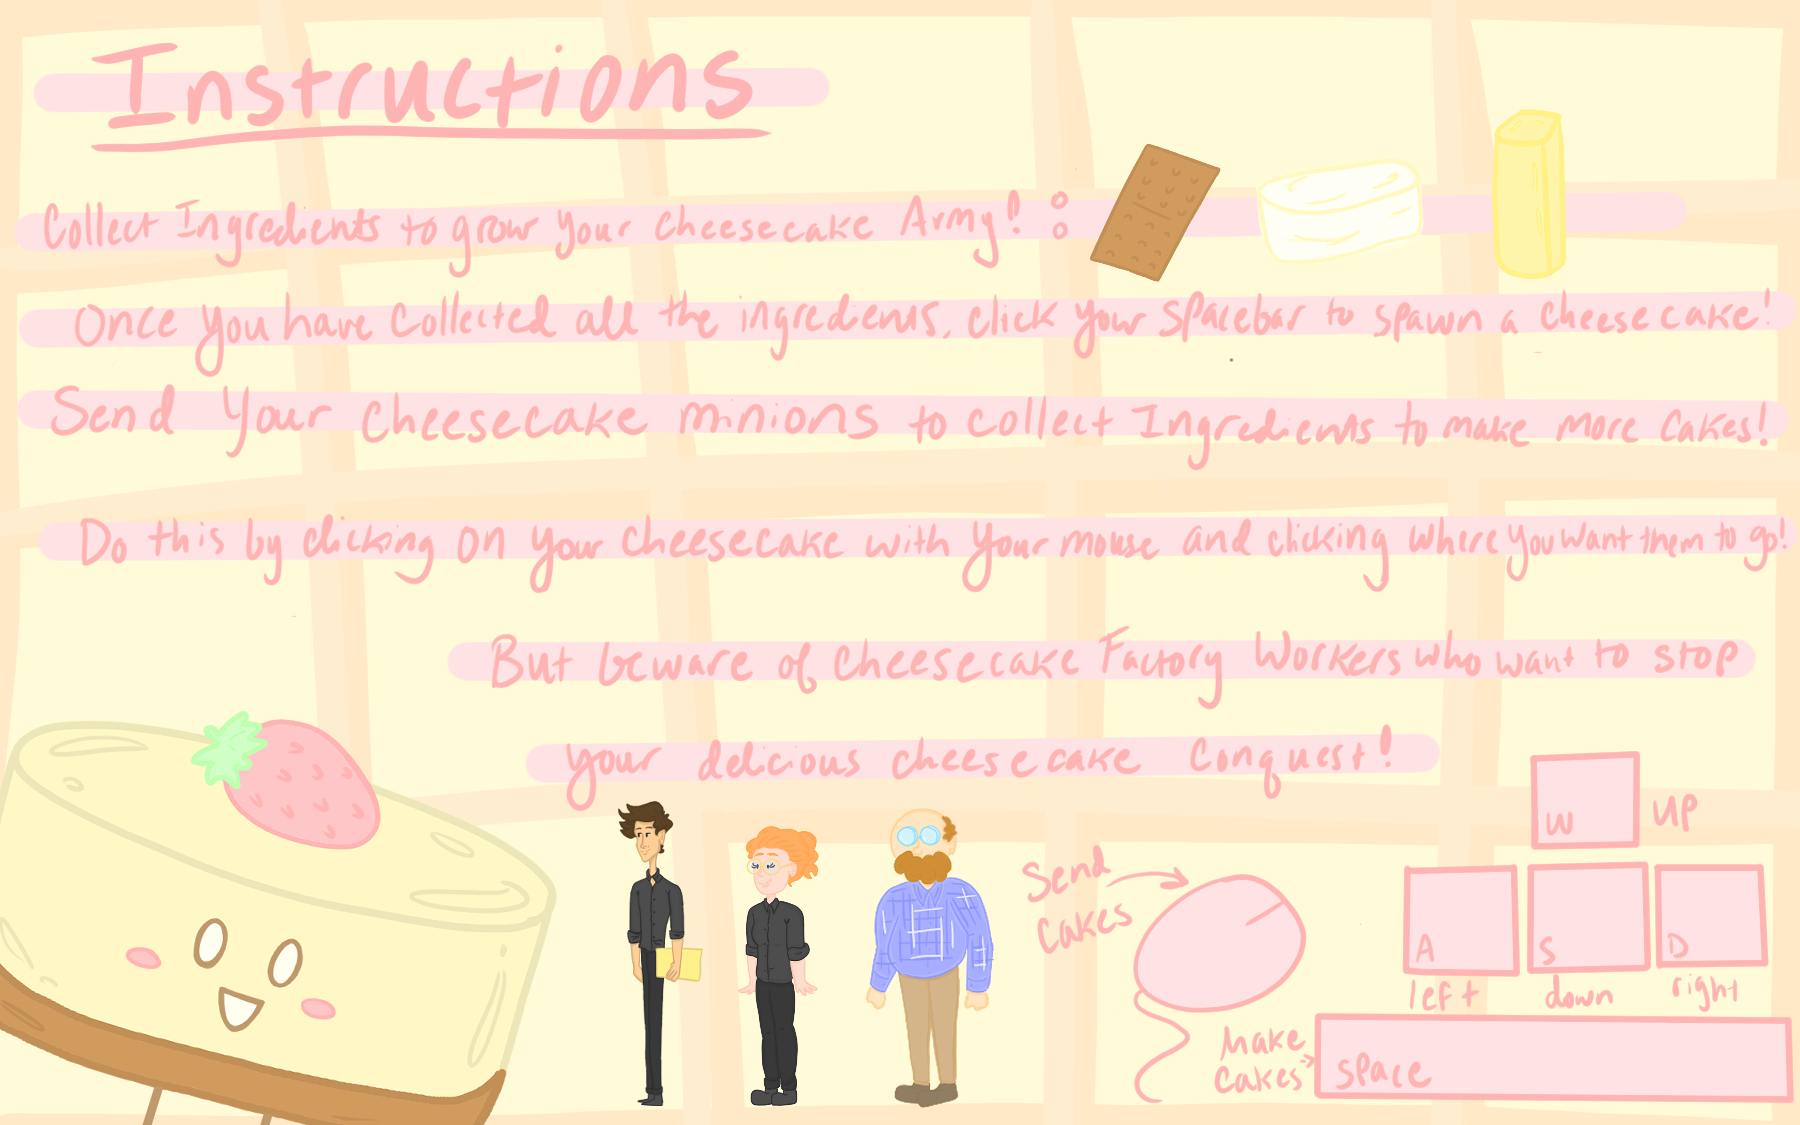 Instructions
Collect Ingredients to grow your cheesecake Army! :
Once you have collected all the ingredients, click your spacebar to spawn a cheesecake!
Send your cheesecake minions to collect Ingredients to make more cakes!
Do this by clicking on your cheesecake with your mouse and clicking where you want them to go!
But beware of cheesecake Factory Workers who want to stop
your delicious cheesecake conquest!
W UP
Send
cakes
A S D
left down right
Make
cakes
space